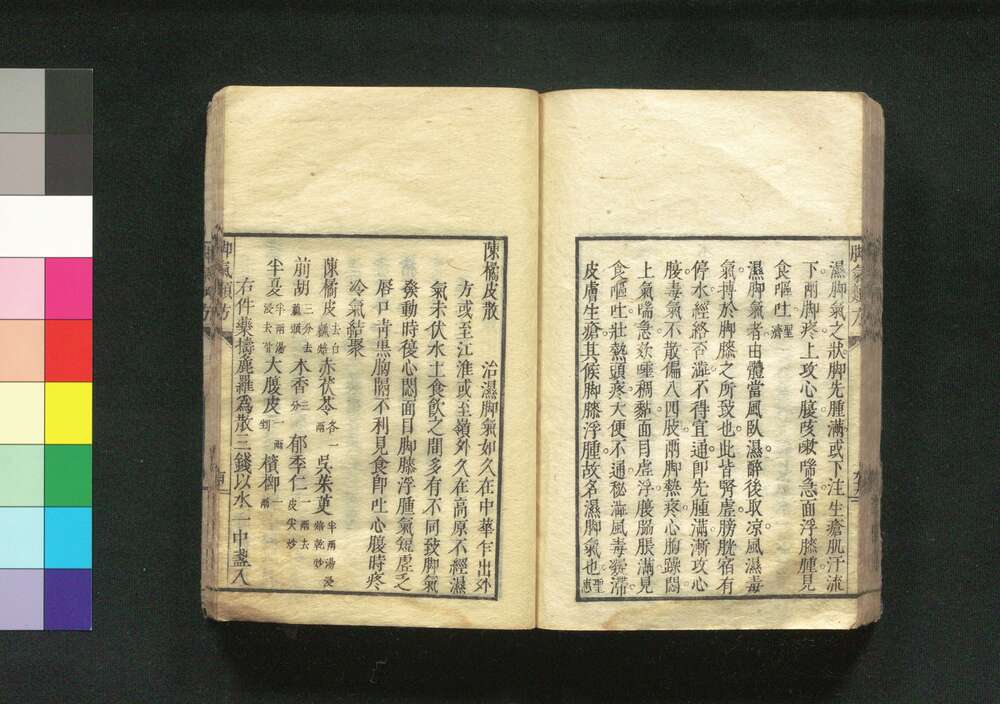 濕脚氣之狀脚先腫滿或下注生瘡肌汗流
下兩脚疼上攻心腹咳嗽喘急面浮膝腫見
食嘔吐聖濟
濕脚氣者由體當風臥濕醉後取凉風濕毒
氣搏於脚膝之所致也此皆腎虛膀胱宿有
停水經絡否澁不得宣通卽先腫滿漸攻心
腹毒氣不散偏入四肢兩脚熱疼心胸躁悶
上氣喘急欬唾稠黏面目虛浮腹脇脹滿見
食嘔吐壯熱頭疼大便不通秘澁風毒凝滯
皮膚生瘡其候脚膝浮腫故名濕脚氣也聖惠
陳橘皮散 治濕脚氣如久在中華乍出外
方或至江淮或至嶺外久在高原不經濕
氣未伏水土食飮之間多有不同致脚氣
發動時復心悶面目脚膝浮腫氣短虛乏
脣口靑黑胸膈不利見食卽吐心腹時疼
冷氣結聚
陳橘皮去白瓤焙 赤茯苓各一兩 吳茱萸半兩湯浸焙乾炒
前胡三分去蘆頭 木香三分 郁李仁一兩去皮尖炒
半夏半兩湯浸去滑 大腹皮一兩剉 檳榔一兩
右件藥擣麁羅爲散三錢以水一中盞入
脚氣類方